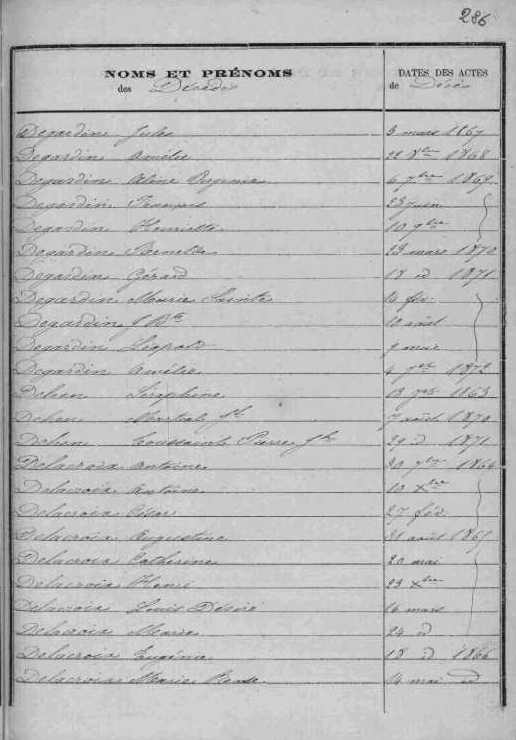 286
NOMS ET PRÉNOMS
des Décédés
DATES DES ACTES
de Décès
Degardin Jules 3 mars 1867
Degardin Amélie 22 8bre 1868
Degardin Aline Eugénie 6 7bre 1869
Degardin François 23 juin
Degardin Henriette 10 9bre
Degardin 23 mars 1870
Degardin Gérard 18 d 1871
Degardin Marie 14 fév.
Degardin J Bte 10 août
Degardin 9 mai
Degardin Amélie 4 7bre 1872
Dehen Séraphine 13 7bre 1863
Dehen Martial Jh 7 août 1870
Dehen Toussaint Pierre Jh 29 d 1871
Delacroix Antoine 20 7bre 1864
Delacroix Antoine 10 Xbre
Delacroix César 27 fév
Delacroix Augustine 21 août 1865
Delacroix Catherine 20 mai
Delacroix Henri 23 Xbre
Delacroix Louis Désiré 16 mars
Delacroix Marie 24 d
Delacroix Eugénie 18 d 1866
Delacroix Marie 14 mai d